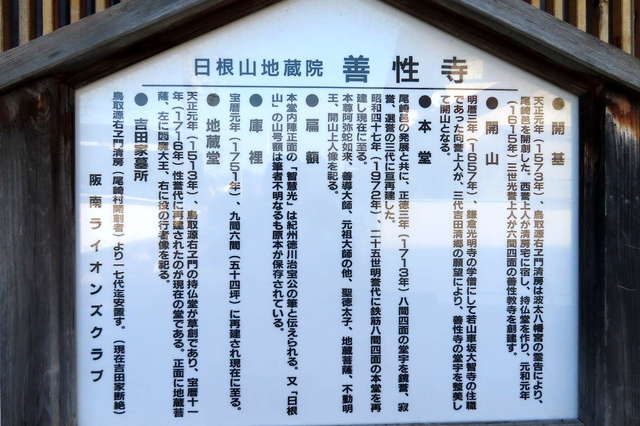 日根山地蔵院 善性寺
●開基
天正元年（1573年）、鳥取源右ヱ門清房は波太八幡宮の霊告により、
尾崎邑を開創した。西誉上人が清房宅に宿し、持仏堂を作り、元和元年
（1615年）三世光誉上人が六間四面の善性教寺を創建す。
●開山
明暦三年（1657年）、鎌倉光明寺の学僧にして若山車坂大智寺の住職
であった向誉上人が、三代吉田清郷の願望により、善性寺の堂宇を整美し
て開山となる。
●本堂
尾崎邑の発展と共に、正徳三年（1713年）八間四面の堂宇を鏡誉、寂
誉、選誉の三代に亘再建した。
昭和四十七年（1972年）、二十五世明誉代に鉄筋八間四面の本堂を再
建し現在に至る。
本尊阿弥蛇如来、善導大師、元祖大師の他、聖徳太子、地蔵菩薩、不動明
王、開山上人像を祀る。
●扁額
本堂内陣正面の「智慧光」は紀州徳川治宝公の筆と伝えられる。又「日根
山」の山号額は筆者不明なるも原本が保存されている。
●庫裡
宝暦元年（1751年）、九間六間（五十四坪）に再建され現在に至る。
●地蔵堂
天正元年（1513年）、鳥取源右ヱ門の持仏堂が草創であり、宝暦十一
年（1716年）性誉代に再建されたのが現在の堂である。正面に地蔵菩
薩、左に閻魔大王、右に役の行者像を祀る。
●吉田家墓所
鳥取源右ヱ門清房（尾崎村開創者）より一七代迄安置す。（現在吉田家断絶）
阪南ライオンズクラブ